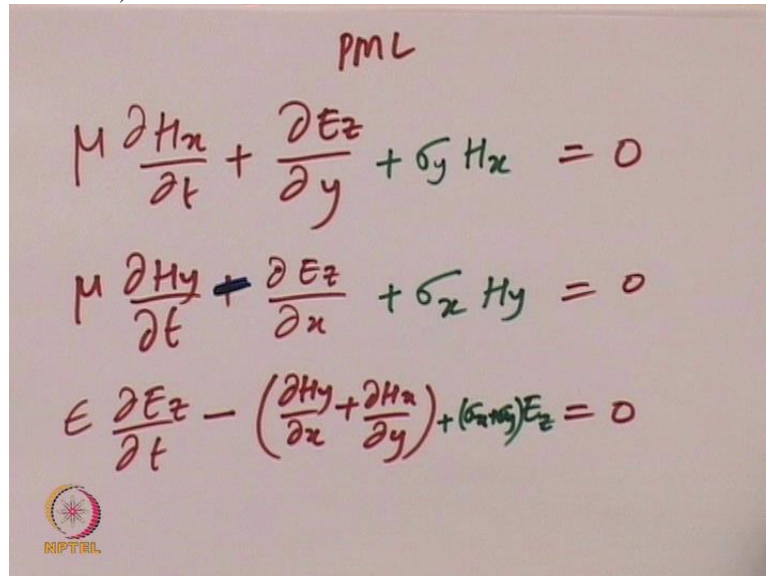 PML
μ ∂Hx/∂t + ∂Ez/∂y + σy Hx = 0
μ ∂Hy/∂t - ∂Ez/∂x + σx Hy = 0
ϵ ∂Ez/∂t - (∂Hy/∂x + ∂Hx/∂y) + (σx+σy)Ez = 0
NPTEL